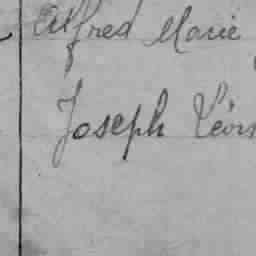 Alfred Marie
Joseph